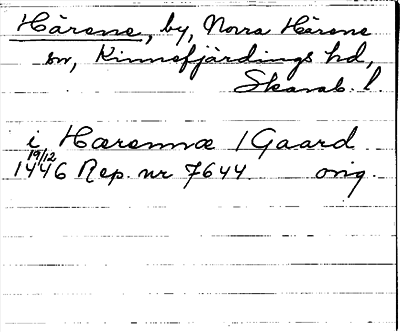 Härene, by, Norra Härene
sn, Kinnefjärdings hd,
Skarab. l.
i Hærennæ 1 Gaard
19/12
1446 Rep. nr 7644 orig.